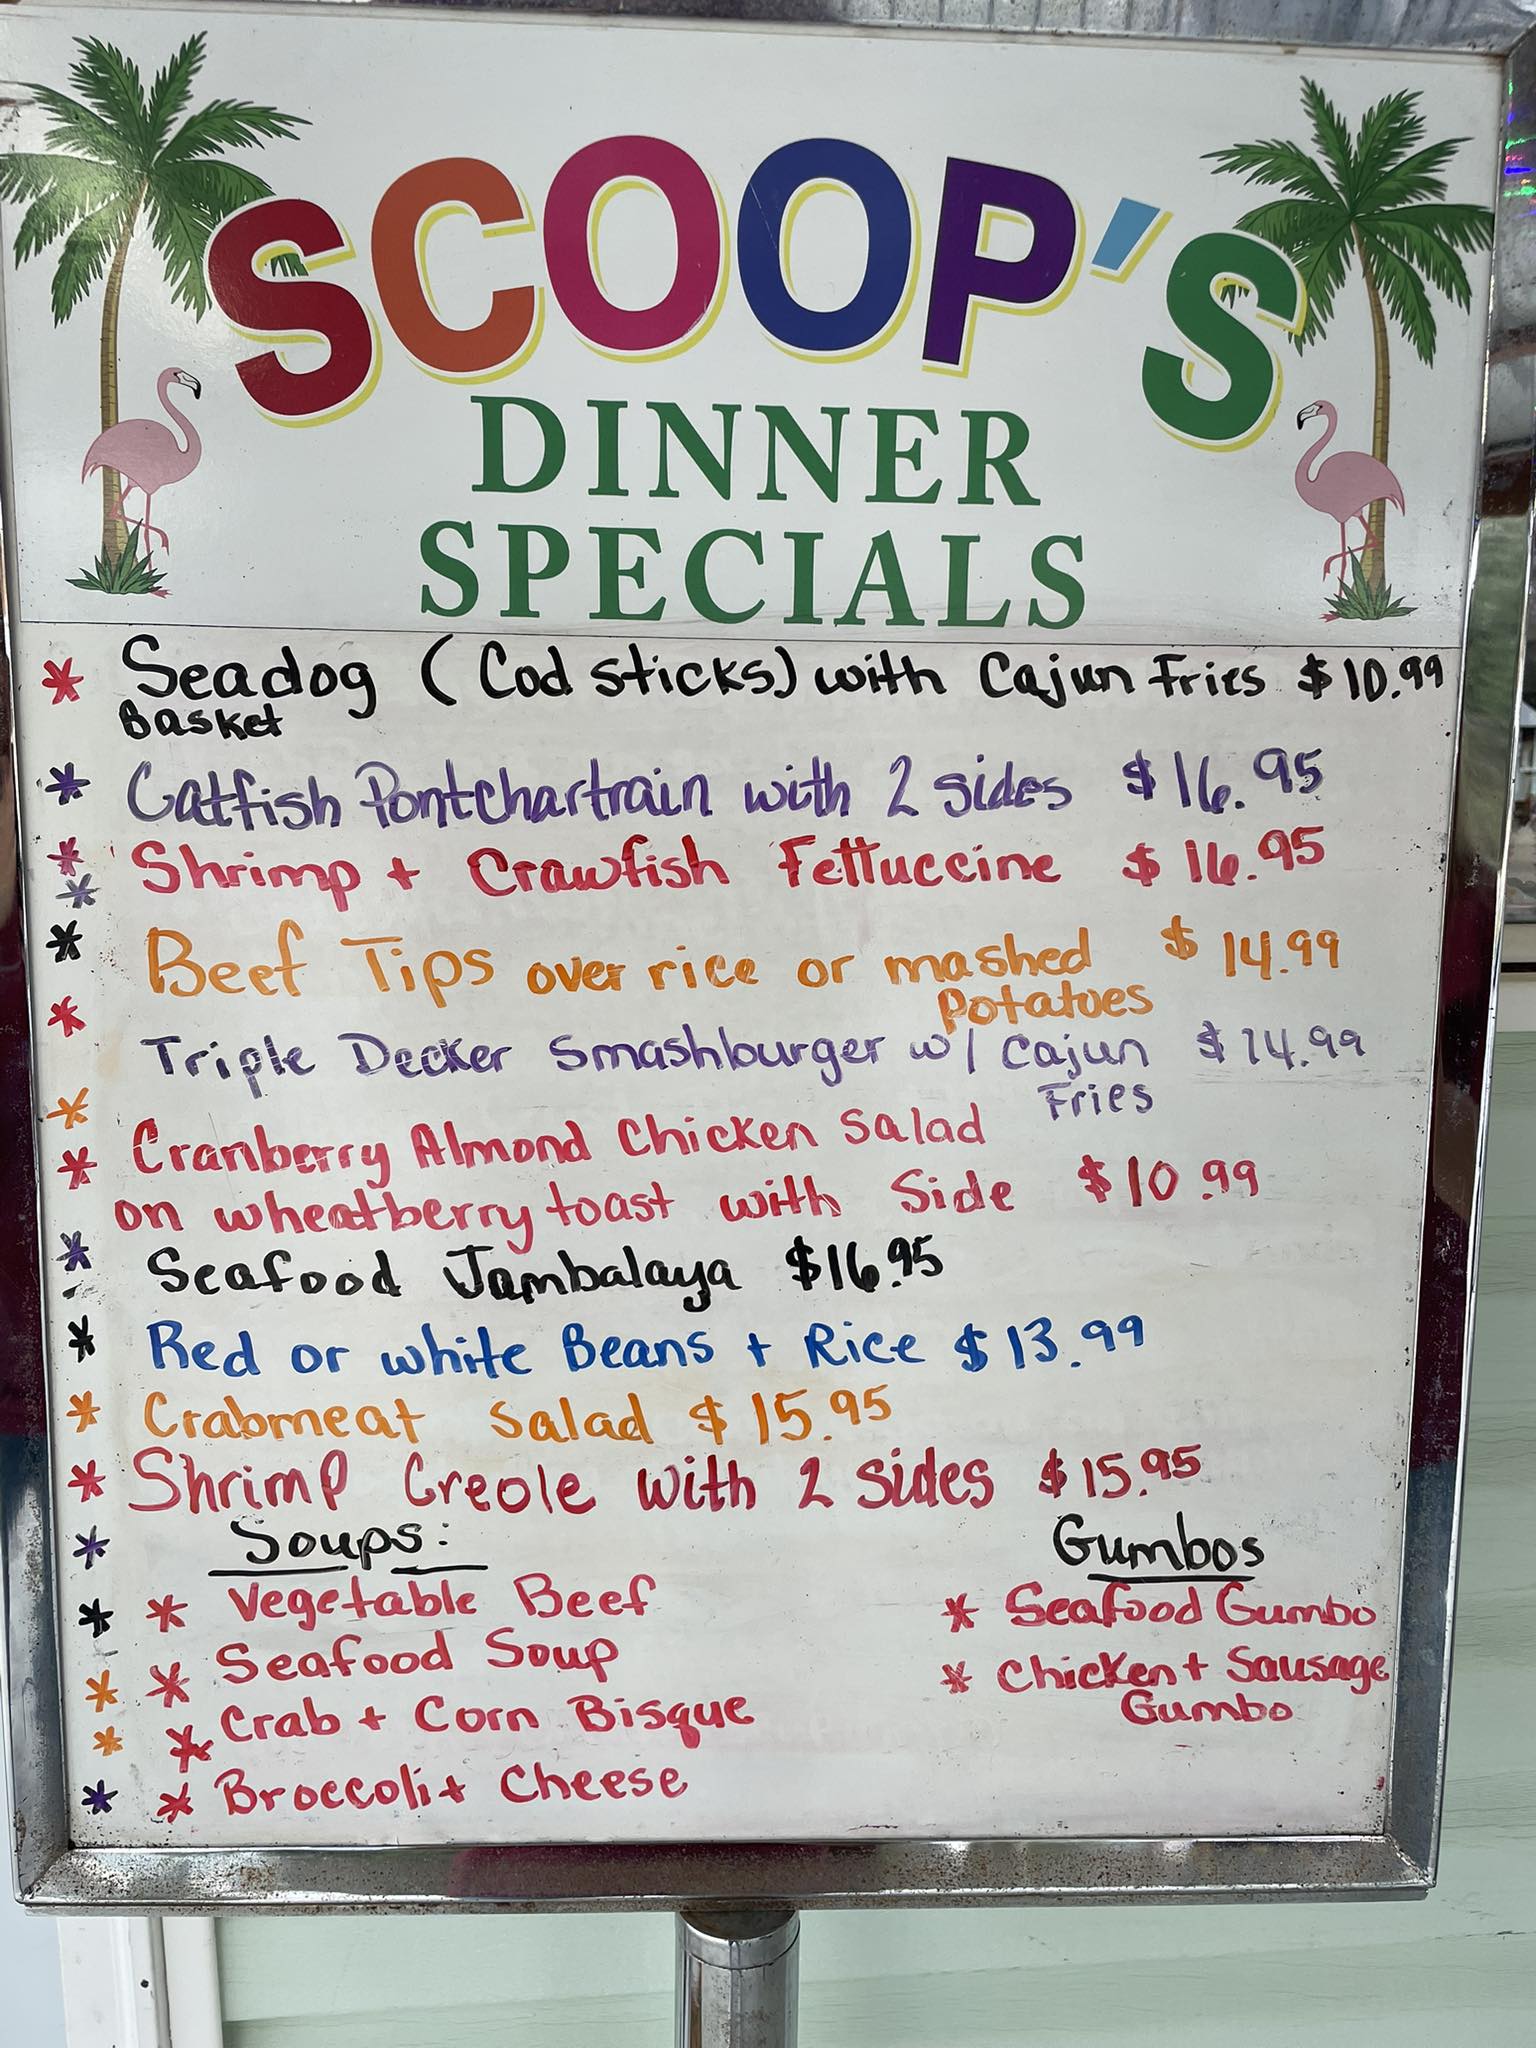 SCOOP'S
DINNER
SPECIALS
* Seadog (Cod sticks) with Cajun Fries $10.99
Basket
* Catfish Pontchartrain with 2 sides $16.95
* Shrimp + Crawfish Fettuccine $16.95
*
* Beef Tips over rice or mashed $14.99
Potatoes
* Triple Decker Smashburger w/ Cajun $14.99
Fries
* Cranberry Almond Chicken Salad
* on wheatberry toast with Side $10.99
* Seafood Jambalaya $16.95
* Red or white Beans + Rice $13.99
* Crabmeat Salad $15.95
* Shrimp Creole with 2 sides $15.95
* Soups:
* * Vegetable Beef
* * Seafood Soup
* * Crab + Corn Bisque
* * Broccoli + Cheese
Gumbos
* Seafood Gumbo
* Chicken + Sausage
Gumbo